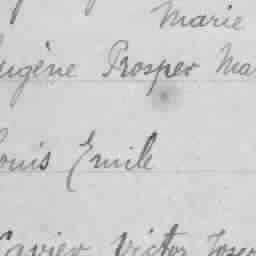 Marie
Eugène Prosper Ma
Louis Emile
Xavier Victor Josep